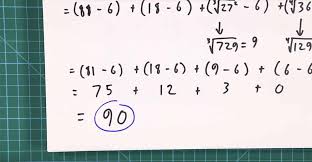 = (88 - 6) + (18 - 6) + (∛27² - 6) + (∜36
↓ ↓
∛729 = 9 ∜129
= (81 - 6) + (18 - 6) + (9 - 6) + (6 - 6
= 75 + 12 + 3 + 0
= 90